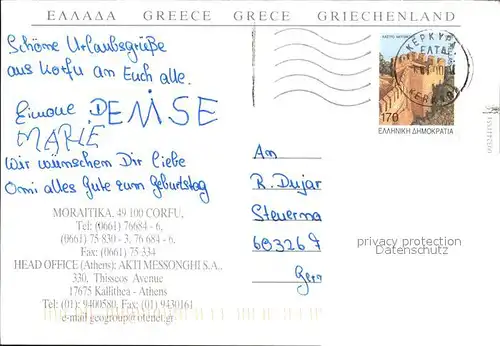 ΕΛΛΑΔΑ GREECE GRECE GRIECHENLAND
Schöne Urlaubsgrüße
aus Korfu an Euch alle.
Simone DENISE
MARIE
Wir wünschem Dir liebe
Omi alles Gute zum Geburtstag
MORAITIKA, 49 100 CORFU,
Tel: (0661) 76684 - 6,
(0661) 75 830 - 3, 76 684 - 6,
Fax: (0661) 75 334
HEAD OFFICE (Athens): AKTI MESSONGHI S.A.,
330, Thisseos Avenue
17675 Kallithea - Athens
Tel: (01): 9400580, Fax: (01) 9430161
e-mail geogroup@otenet.gr
ΚΕΡΚΥΡΑ
ΕΛΤΑ
170
ΕΛΛΗΝΙΚΗ ΔΗΜΟΚΡΑΤΙΑ
An
R. Dujar
Steuerma
68326
Ger
privacy protection
Datenschutz